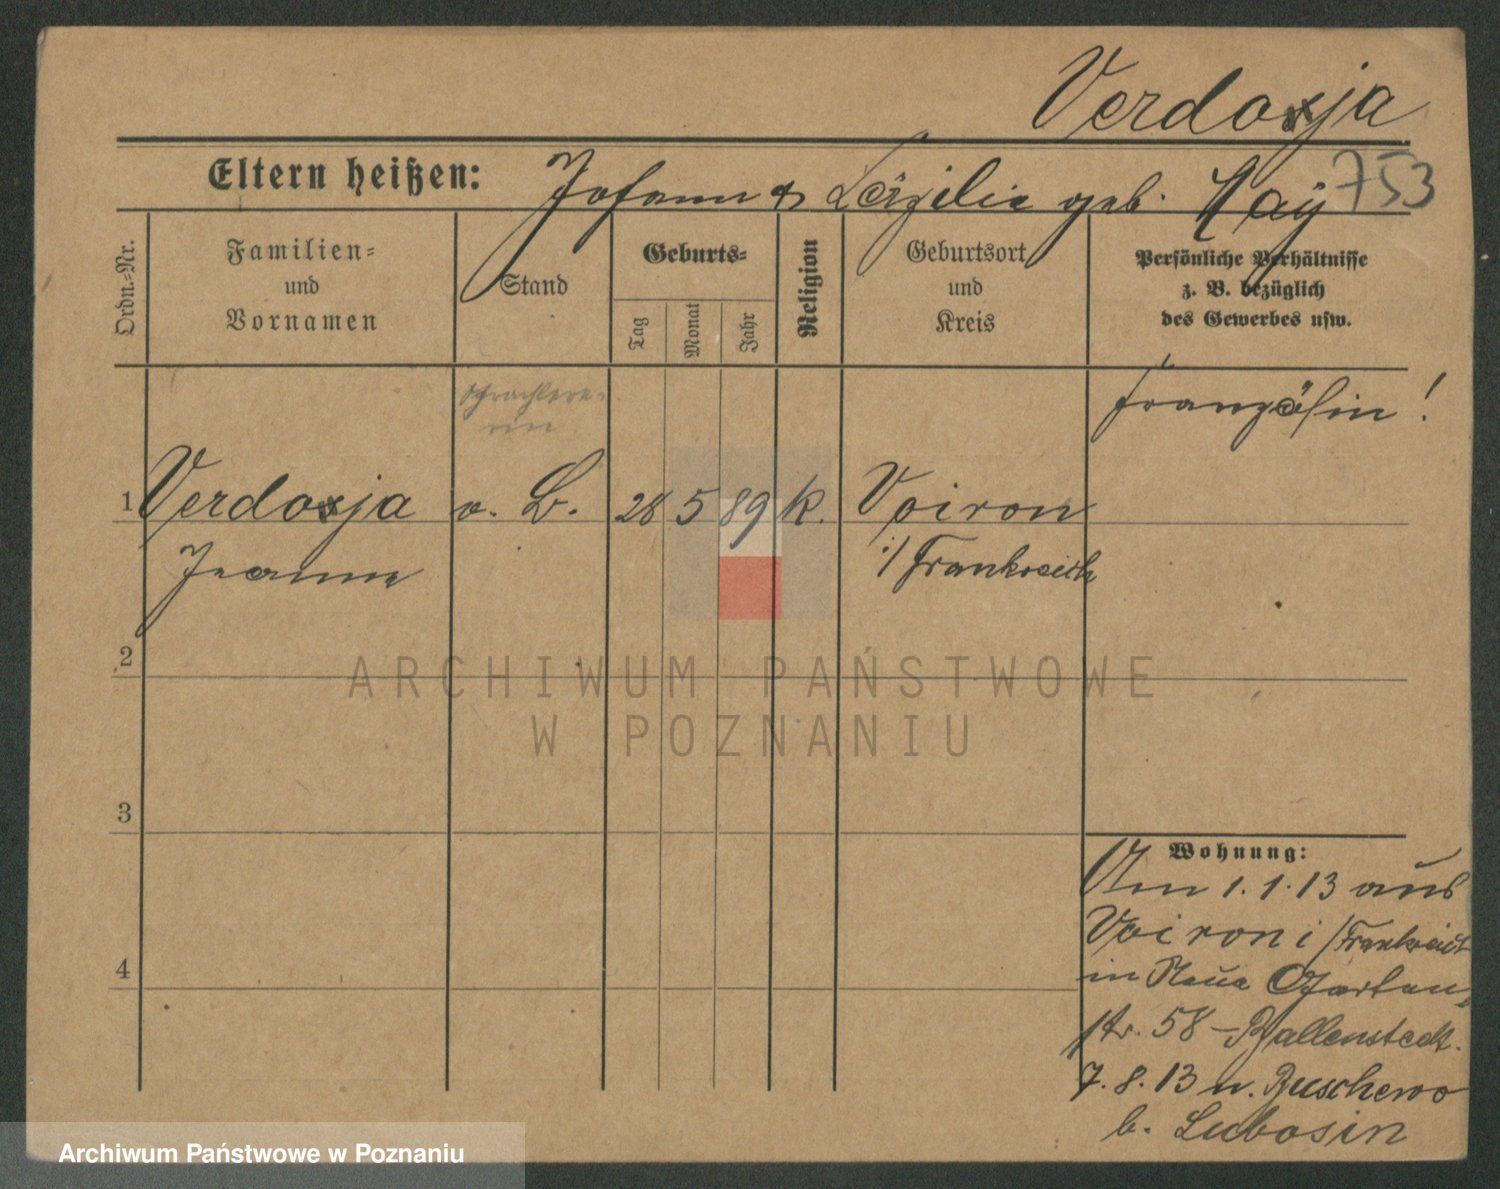 Verdoxja
Eltern heißen: Johann & Cäzilie geb. May 753
Ordn.-Nr.
Familien-
und
Vornamen
Stand
Geburts-
Tag
Monat
Jahr
Religion
Geburtsort
und
Kreis
Persönliche Verhältnisse
z. B. bezüglich
des Gewerbes usw.
Französin!
1 Verdoxja o. B. 28 5 89 k. Voiron
Jeanne i/Frankreich
2
ARCHIWUM PAŃSTWOWE
W POZNANIU
3
4
Wohnung:
Am 1.1.13 aus
Voiron i/Frankreich
in Neue Garten-
str. 58 - Ballenstedt.
7.8.13 n. Buschewo
b. Lubosin
Archiwum Państwowe w Poznaniu